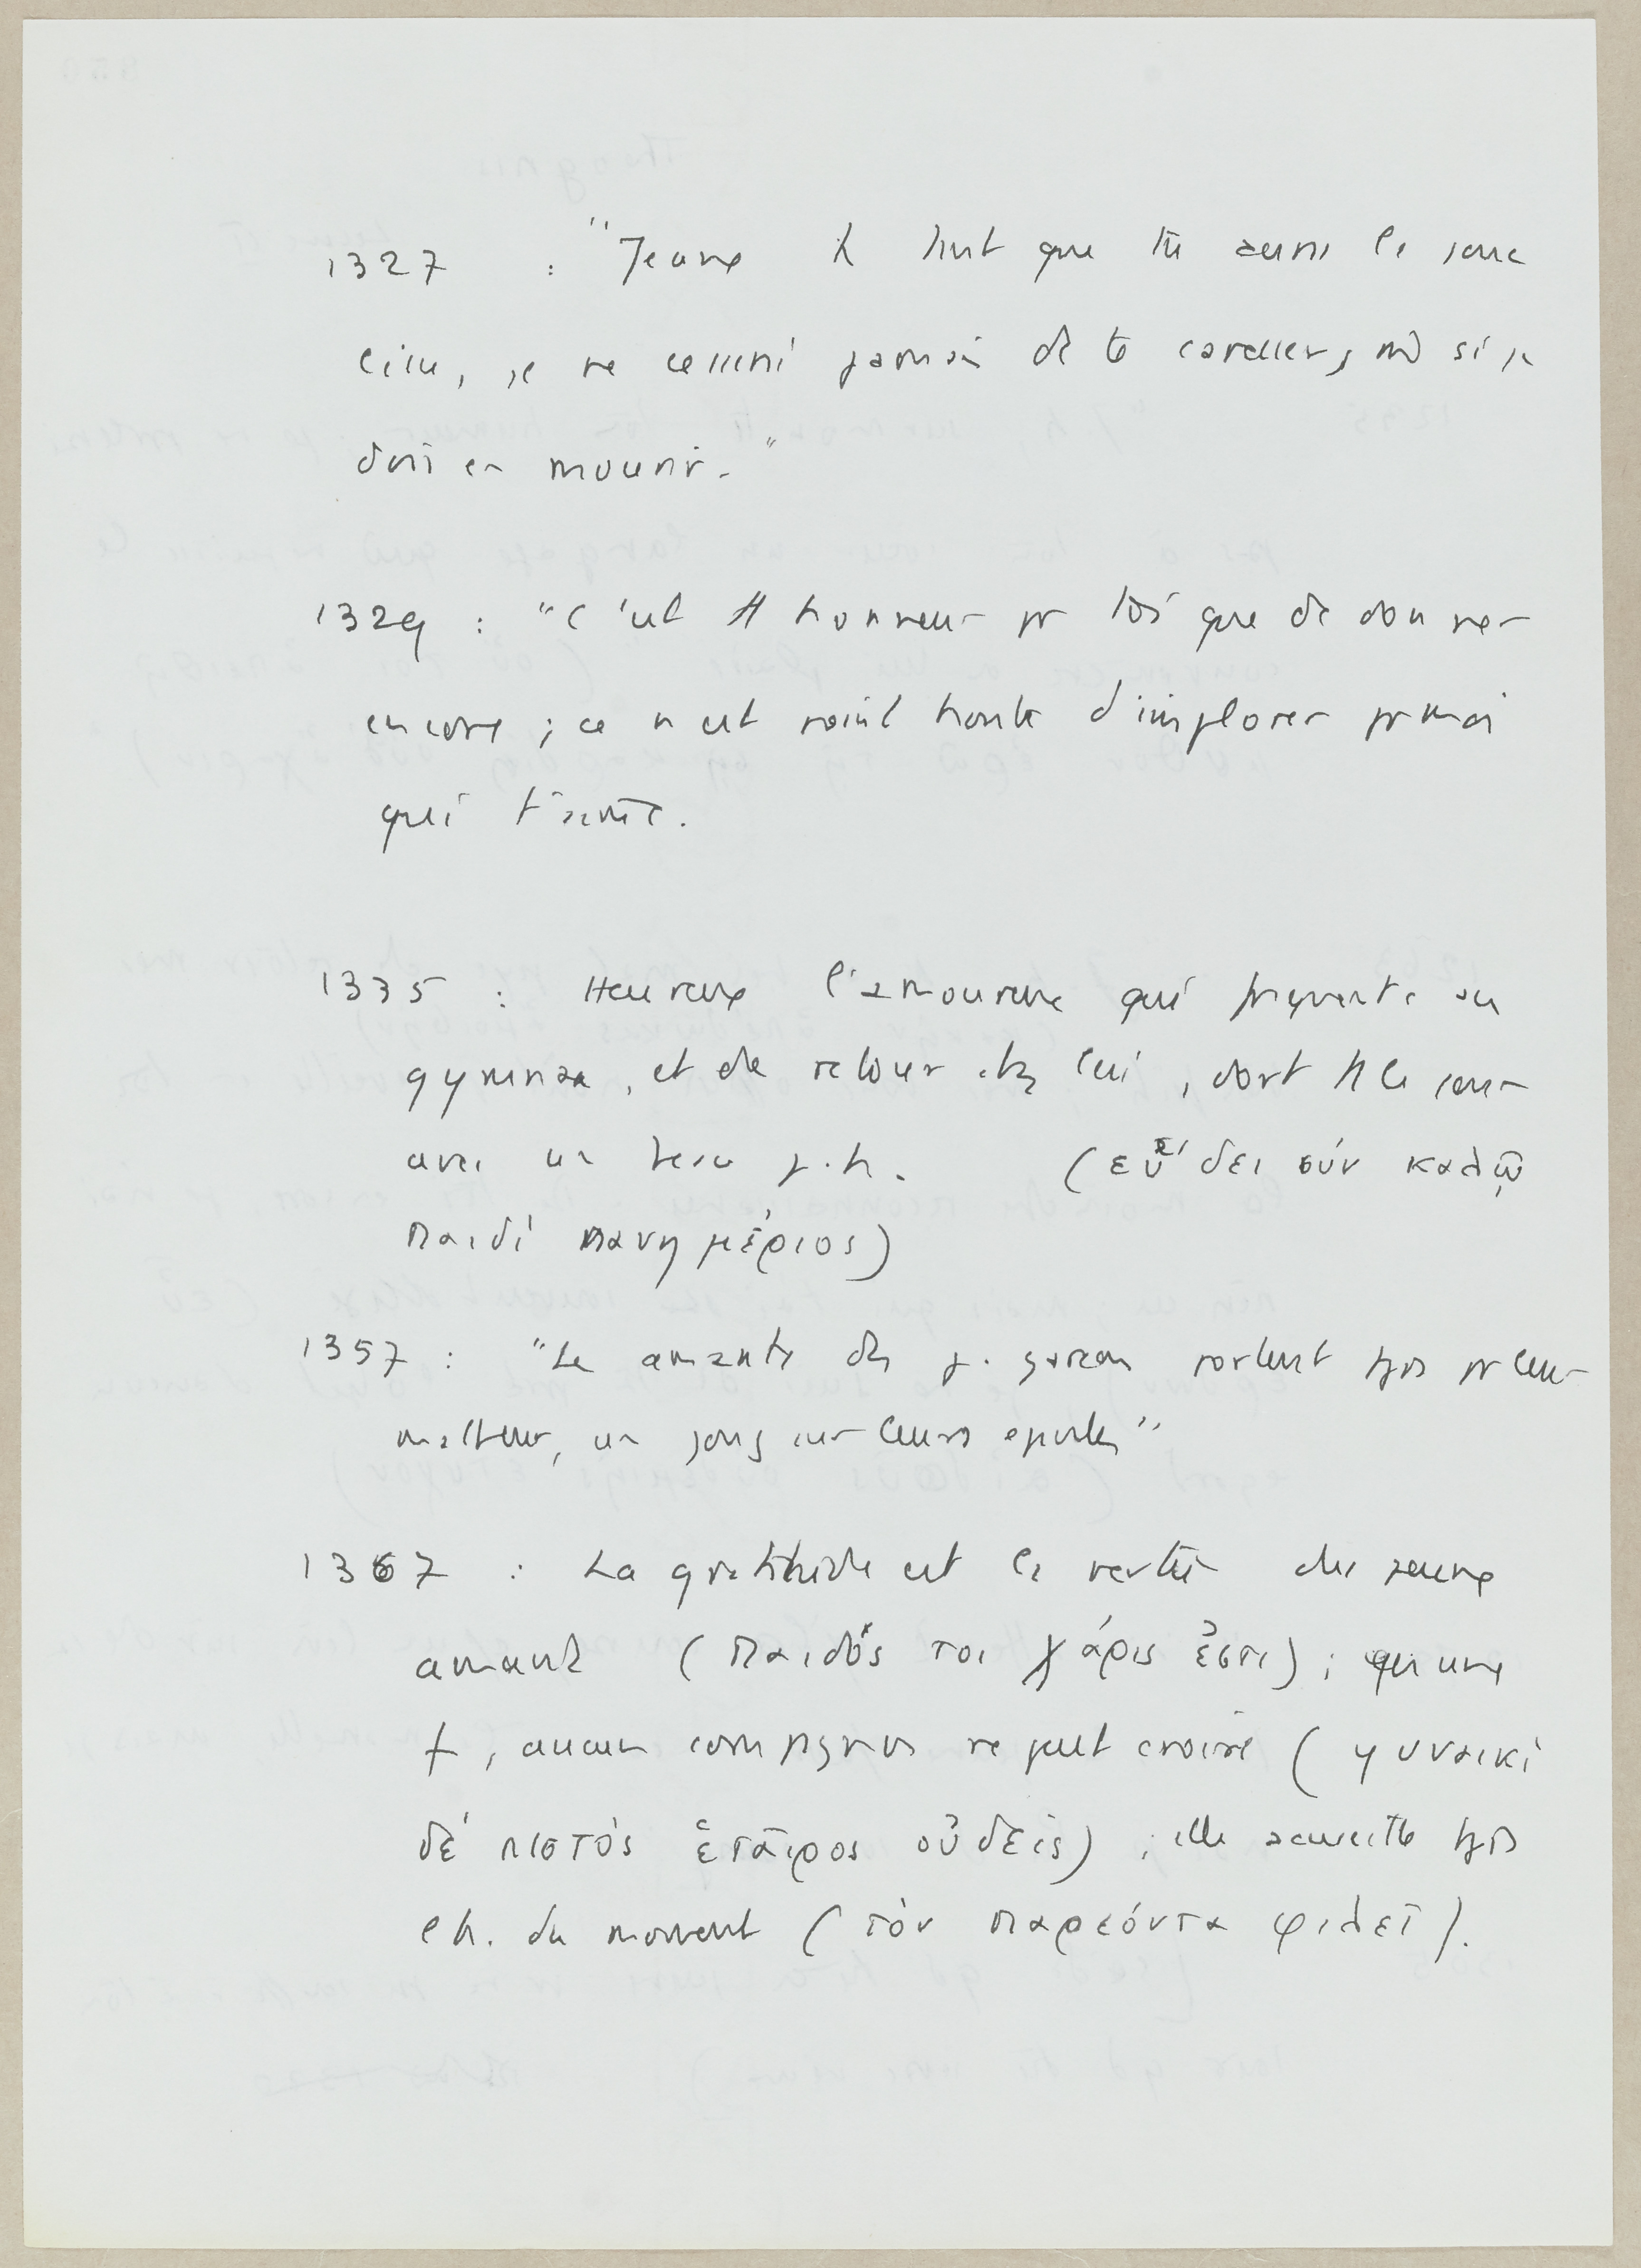 1327 : "Jeune h. tant que tu auras la joue
lisse, je ne cesserai jamais de te caresser, mê si je
dois en mourir."
1329 : "c'est tt honneur pr toi que de donner
encore ; ce n'est point honte d'implorer pr moi
qui t'aime.
1335 : Heureux l'amoureux qui fréquente un
gymnase, et de retour chz lui, dort tt le jour
avec un beau j.h. (εὕδει σύν καλῷ
παιδί πανημέριος)
1357 : "Les amants des j. garçons portent tjrs pr leur
malheur, un joug sur leurs epaules"
1367 : La gratitude est la vertu du jeune
amant (παιδός τοι χάρις ἔστι) ; qu'une
f, aucun compagnon ne peut croire (γυναικί
δέ πιστός ἑταῖρος οὐδείς) ; elle accueille tjrs
l'h. du moment (τόν παρεόντα φιλεῖ).